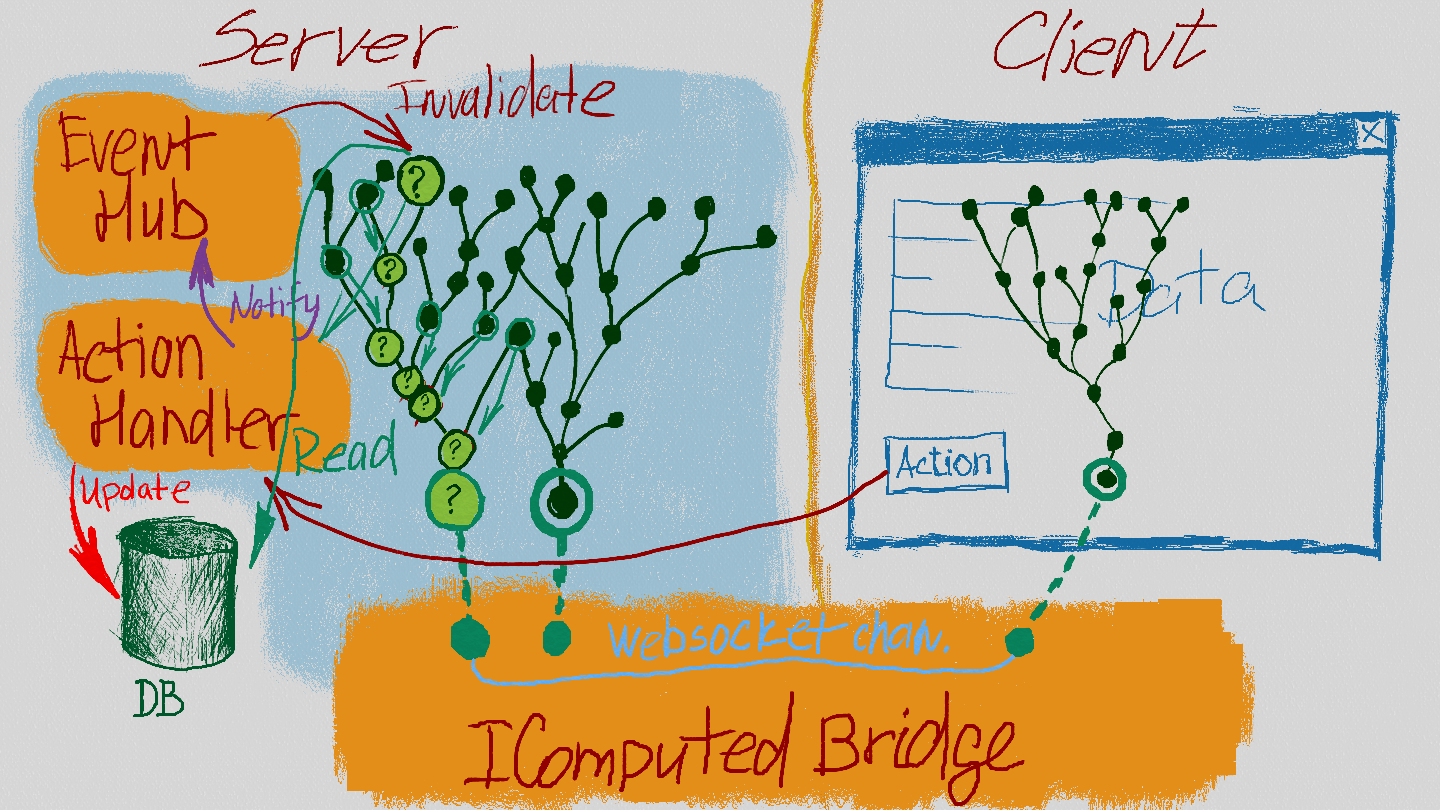 Server
Client
Invalidate
Event
Hub
Notify
Action
Handler
Read
Update
DB
?
?
?
?
?
?
?
X
Data
Action
Websocket chan.
IComputed Bridge